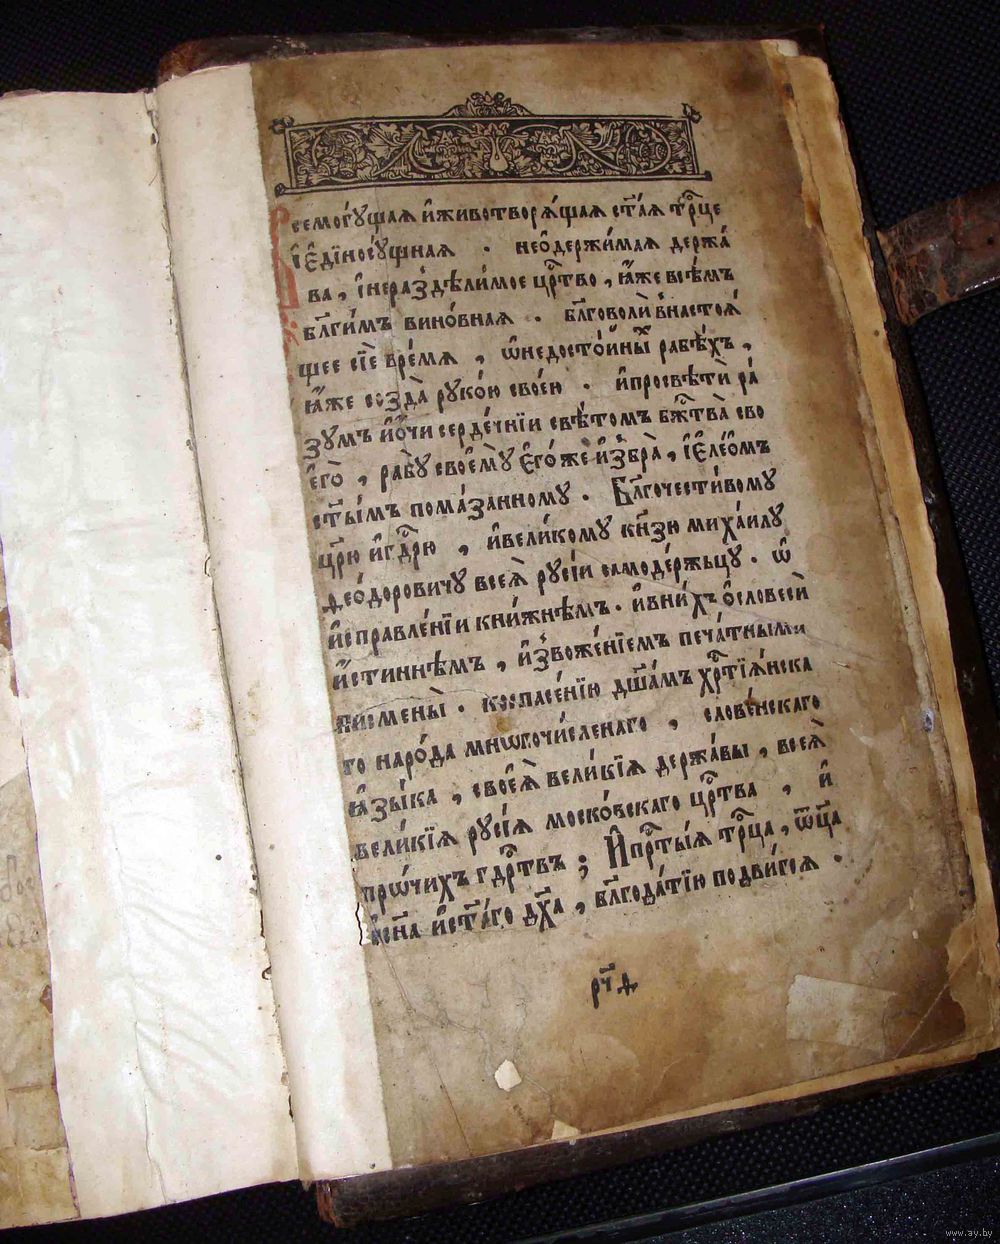 Всемогꙋщаѧ и҆животворѧ́щаѧ ст҃аѧ трⷪ҇це
і҆є҆ди́носꙋ́щнаѧ . нео҆держи́маѧ держа́
ва , і҆нераздѣли́мое црⷭ҇тво , ꙗ҆́же всѣ́мъ
бл҃ги́мъ вино́внаѧ . бл҃говоли̂ внастоѧ́
щее сїе̂ вре́мѧ , ѡ҆недосто́йны рабѣ́хъ ,
ꙗ҆́же созда̀ рꙋко́ю свое́ю . и҆просвѣти̂ ра́
зꙋмъ и҆ѻ҆́чи серде́чнїи свѣ́томъ бжⷭ҇тва̀ сво
єго̀ , рабꙋ̀ своемꙋ̀ є҆го́же и҆збра̀ , і҆є҆ле́омъ
ст҃ы́мъ пома́занномꙋ . Бл҃гочести́вомꙋ
цр҃ю и҆гдⷭ҇рю , и҆вели́комꙋ кн҃зю михаи́лꙋ
ѳео́доровичꙋ всеѧ̀ рꙋсі́и самоде́ржьцꙋ . ѡ҆
и҆справле́нїи кни́жнѣмъ . и҆вни́хъ ѻ҆словесѝ
и҆́стиннѣмъ , и҆зложе́нїемъ печа́тными
писмены̀ . коспасе́нїю дш҃а́мъ хрⷭ҇тїѧ́нска
го наро́да мнѡгочи́сленаго , слове́нскаго
ꙗ҆зы́ка , своеѧ̀ вели́кїѧ держа́вы , всеѧ̀
вели́кїѧ рꙋсі́ѧ моско́вскаго црⷭ҇тва , и҆
прѡ́чихъ гдⷭ҇рⷭ҇твъ ; И҆прⷭ҇ты́ѧ трⷪ҇ца , ѿц҃а
исн҃а и҆ст҃а́го дх҃а , бл҃года́тїю подви́гсѧ .
рч҃д
www.ay.by